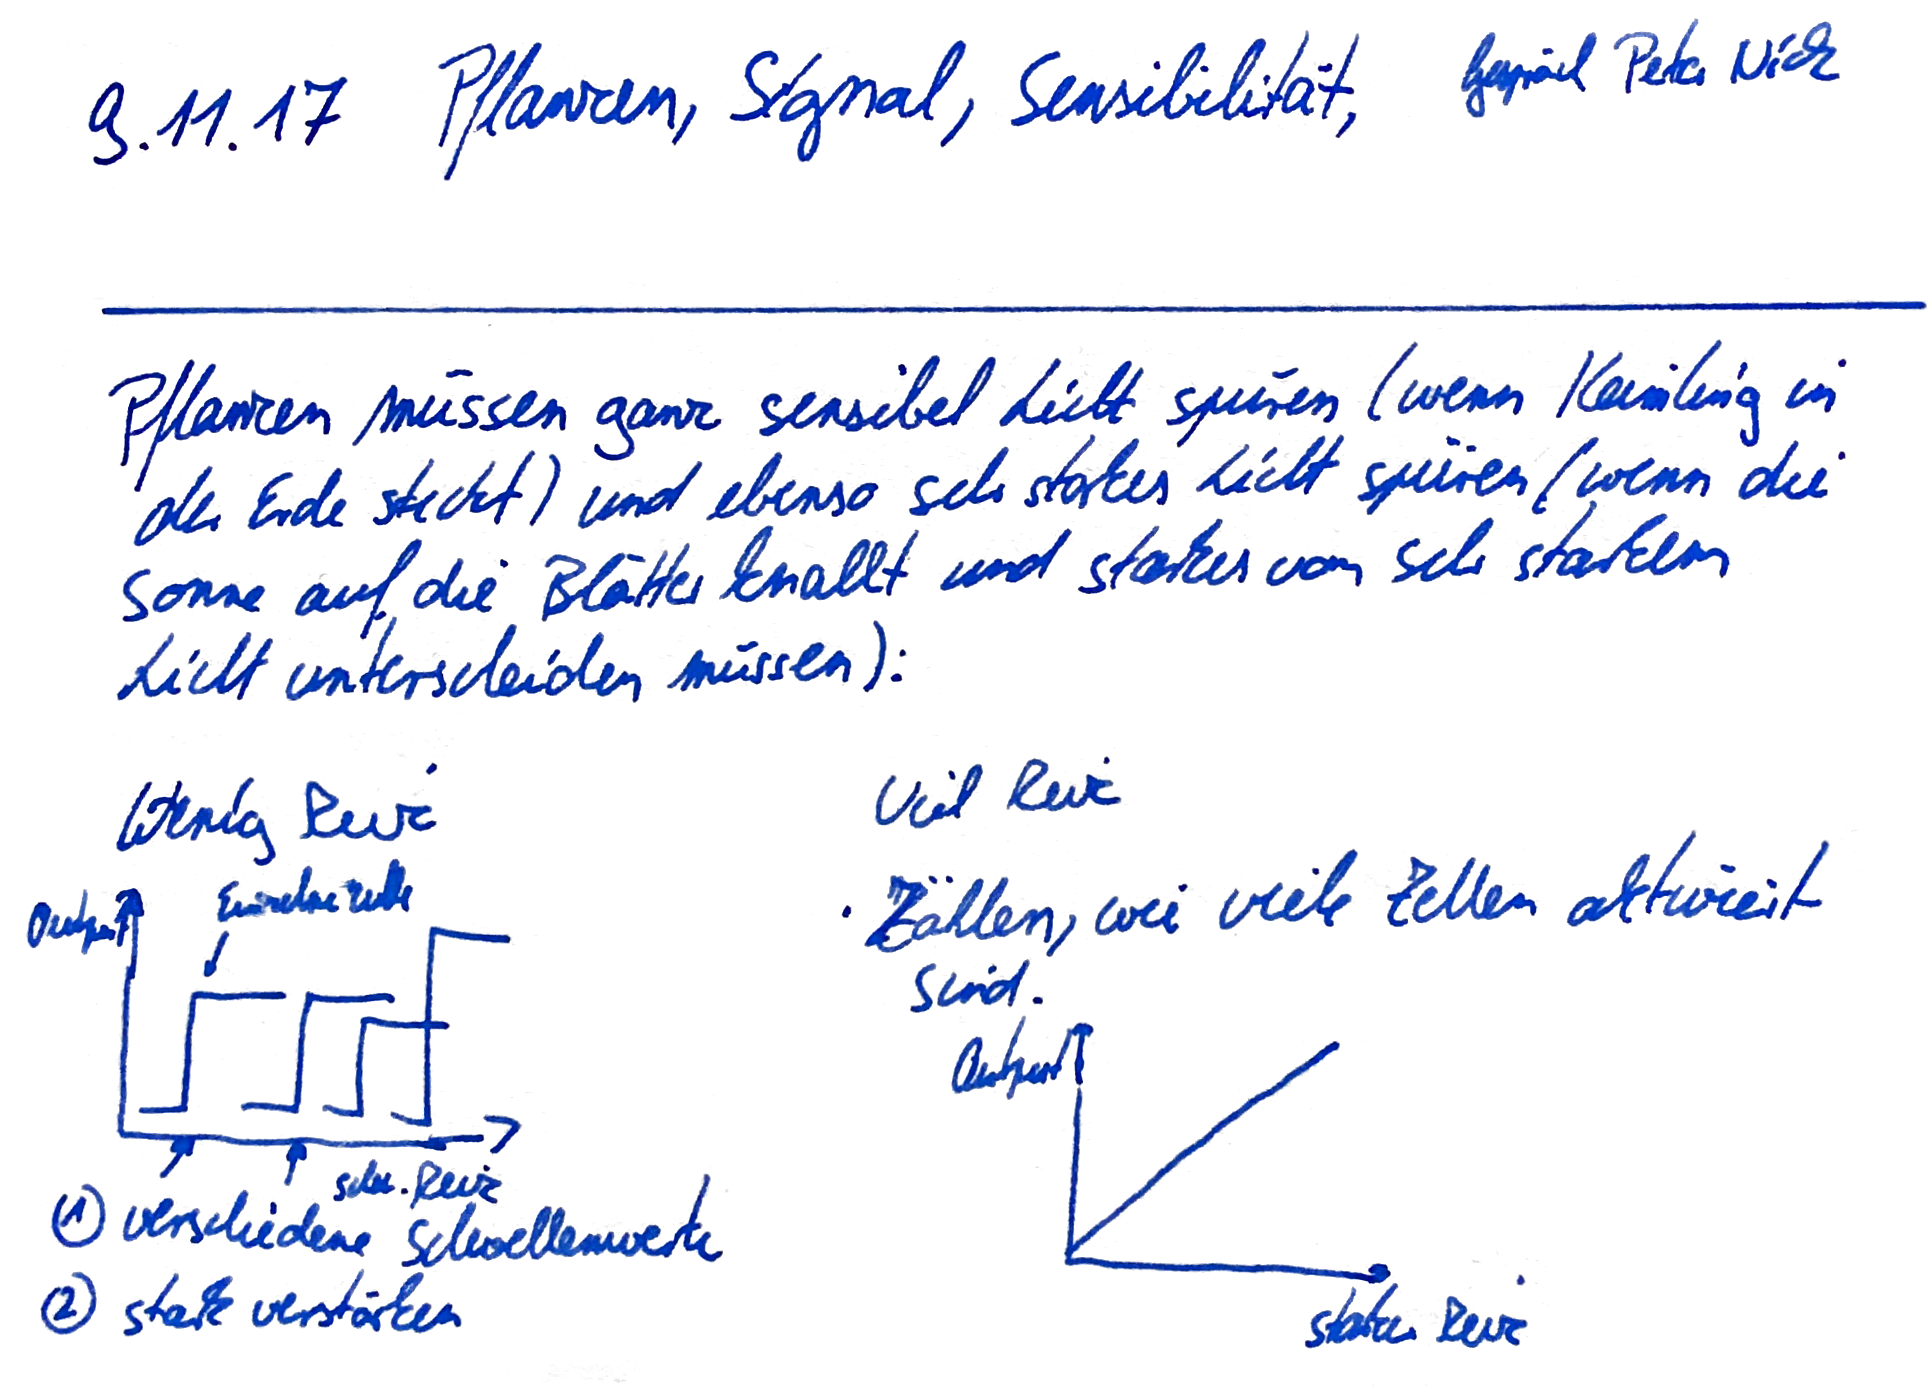 9.11.17 Pflanzen, Signal, Sensibilität, Gespräch Peter Nick
Pflanzen müssen ganz sensibel Licht spüren (wenn Keimling in
der Erde steckt) und ebenso sehr starkes Licht spüren (wenn die
Sonne auf die Blätter knallt und starkes von sehr starkem
Licht unterscheiden müssen):
Wenig Reiz
Output
Einzelne Zelle
schw. Reiz
① verschiedene Schwellenwerte
② stark verstärken
Viel Reiz
· Zählen, wie viele Zellen aktiviert
sind.
Output
starker Reiz